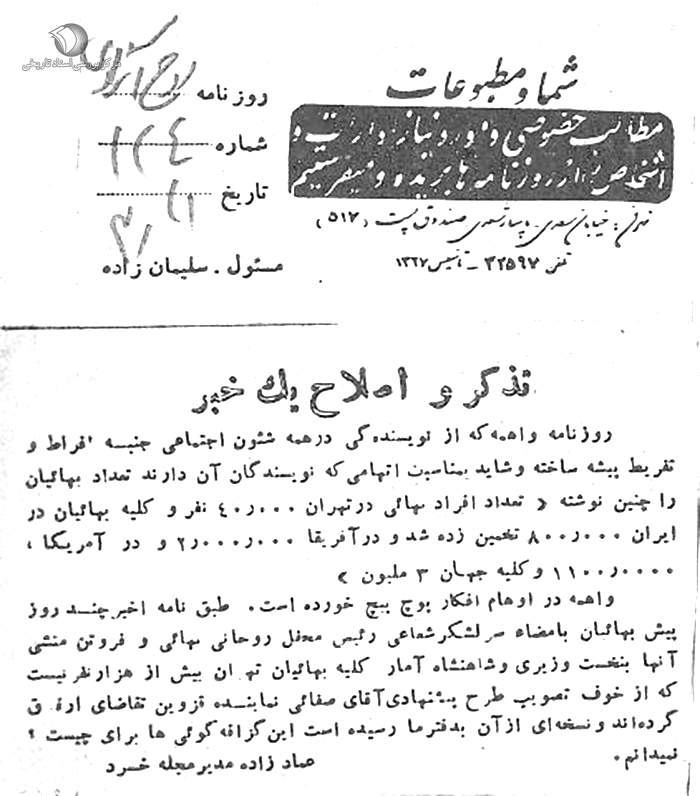 مرکز بررسی اسناد تاریخی
شما و مطبوعات
مطالب خصوصی و مورد نیاز ادارات و
اشخاص را از روزنامه ها بریده و میفرستیم
تهران: خیابان سعدی - پاساژ سعدی صندوق پست (۵۱۷)
تلفن ۳۲۵۹۷ - تاسیس ۱۳۲۷
روزنامه
شماره ۱۲۴
تاریخ
مسئول . سلیمان زاده
تذکر و اصلاح یك خبر
روزنامه واهمه که از نویسندگی درهمه شئون اجتماعی جنبه افراط و
تفریط پیشه ساخته وشاید بمناسبت اتهامی که نویسندگان آن دارند تعداد بهائیان
را چنین نوشته « تعداد افراد بهائی درتهران ۴۰٫۰۰۰ نفر و کلیه بهائیان در
ایران ۸۰۰٫۰۰۰ تخمین زده شد و درآفریقا ۲٫۰۰۰٫۰۰۰ و در آمریکا ،
۱۱۰۰٫۰۰۰۰ و کلیه جهان ۳ ملیون »
واهمه در اوهام افکار پوچ پیچ خورده است. طبق نامه اخیر چند روز
پیش بهائیان بامضاء سرلشکر شعاعی رئیس محفل روحانی بهائی و فروتن منشی
آنها بنخست وزیری وشاهنشاه آمار کلیه بهائیان تهران بیش از هزار نفر نیست
که از خوف تصویب طرح پیشنهادی آقای صفائی نماینده قزوین تقاضای ارفاق
کرده‌اند و نسخه‌ای از آن بدفتر ما رسیده است این گزافه گوئی ها برای چیست ؟
نمیدانم. عماد زاده مدیر مجله خرد